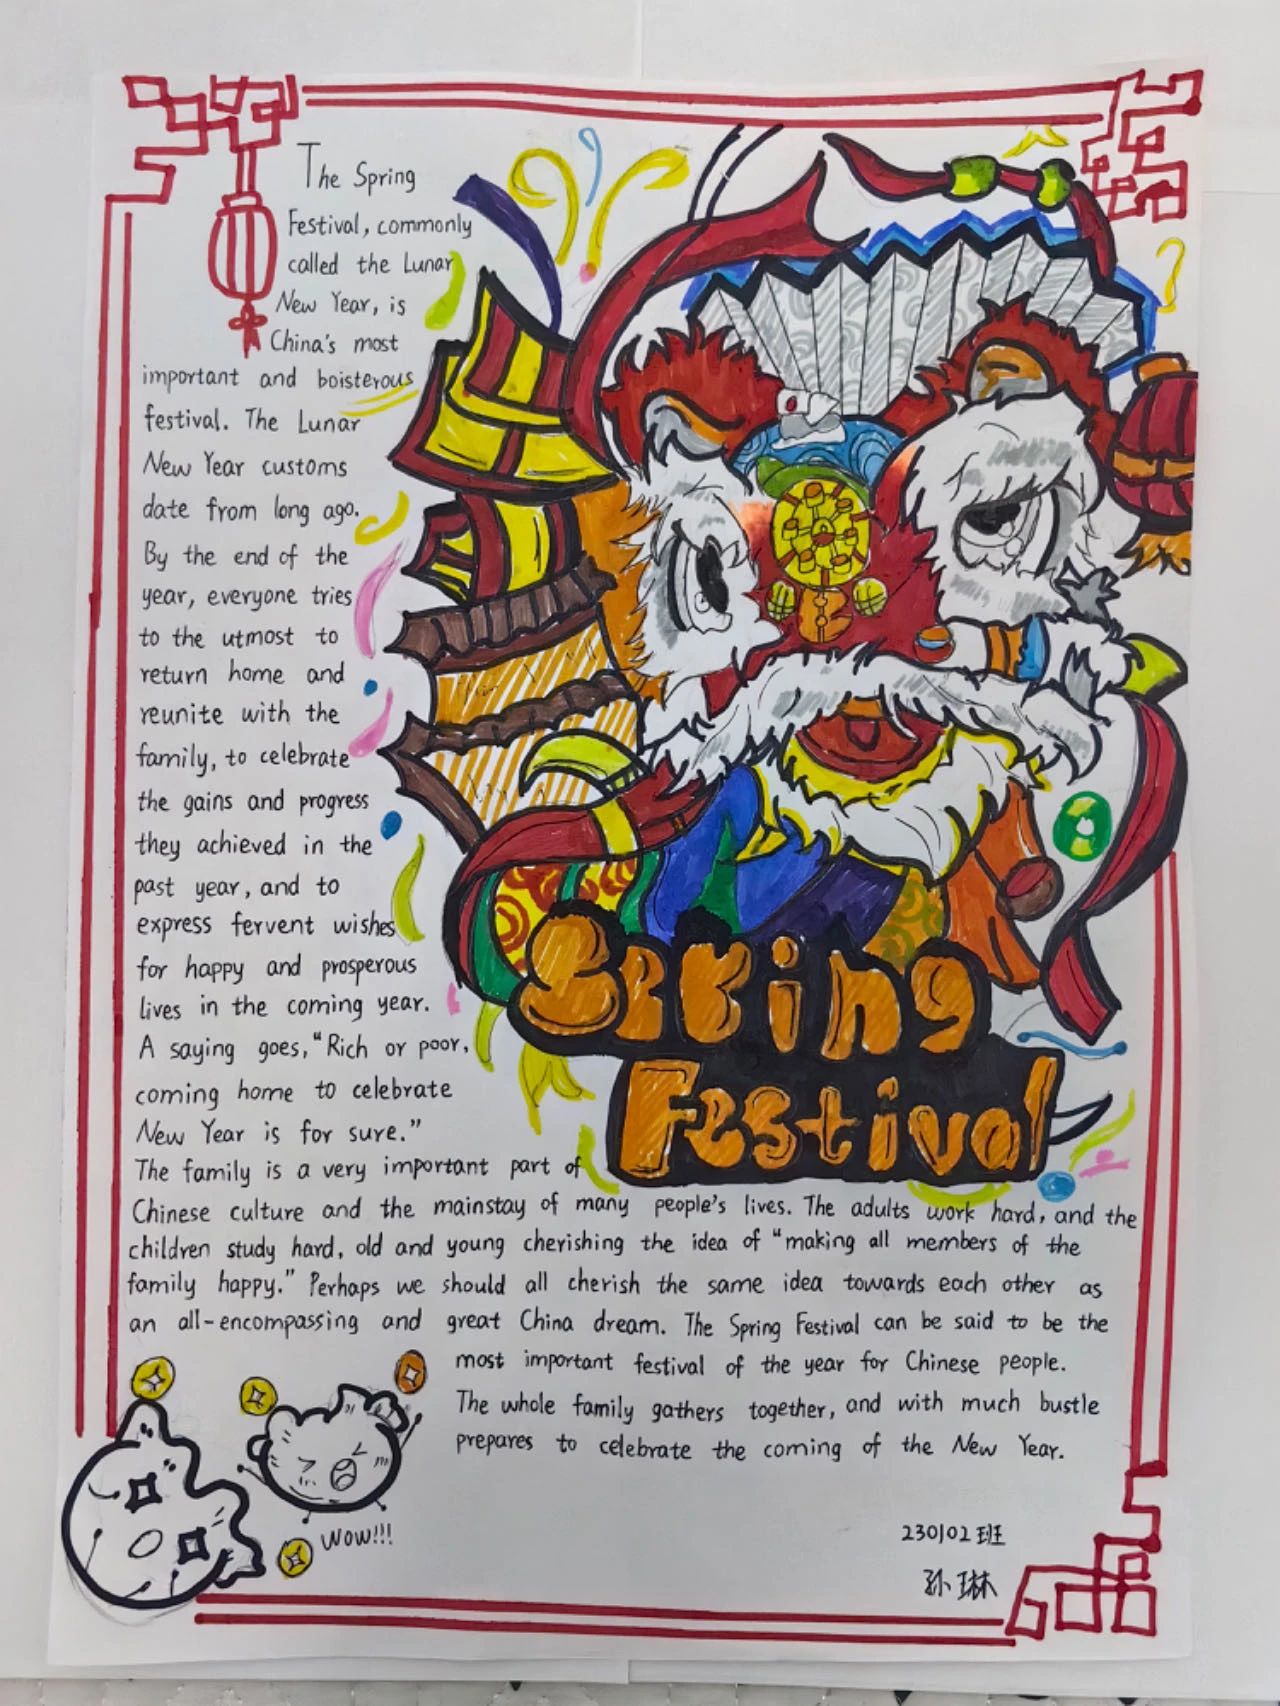 The Spring
Festival, commonly
called the Lunar
New Year, is
China's most
important and boisterous
festival. The Lunar
New Year customs
date from long ago.
By the end of the
year, everyone tries
to the utmost to
return home and
reunite with the
family, to celebrate
the gains and progress
they achieved in the
past year, and to
express fervent wishes
for happy and prosperous
lives in the coming year.
A saying goes, "Rich or poor,
coming home to celebrate
New Year is for sure."
The family is a very important part of
Chinese culture and the mainstay of many people's lives. The adults work hard, and the
children study hard, old and young cherishing the idea of "making all members of the
family happy." Perhaps we should all cherish the same idea towards each other as
an all-encompassing and great China dream. The Spring Festival can be said to be the
most important festival of the year for Chinese people.
The whole family gathers together, and with much bustle
prepares to celebrate the coming of the New Year.
Spring
Festival
WOW!!!
230102班
孙琳